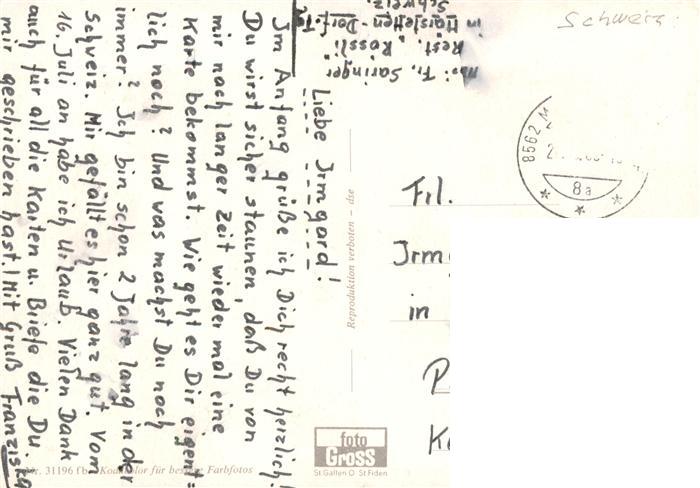 Liebe Irmgard!
Im Anfang grüße ich Dich recht herzlich!
Du wirst sicher staunen, daß Du von
mir nach langer Zeit wieder mal eine
Karte bekommst. Wie geht es Dir eigent=
lich noch? Und was machst Du noch
immer? Ich bin schon 2 Jahre lang in der
Schweiz. Mir gefällt es hier ganz gut. Vom
16. Juli an habe ich Urlaub. Vielen Dank
auch für all die Karten u. Briefe die Du
mir geschrieben hast! Mit Gruß Franziska
Fr. Saringer
Rest. Rössli
in Märstetten-Dorf
Schweiz.
Schweiz
8562
8a
Frl.
in
Reproduktion verboten – dse
foto
Gross
St. Gallen O St. Fiden
Nr. 31196 für bessere Farbfotos